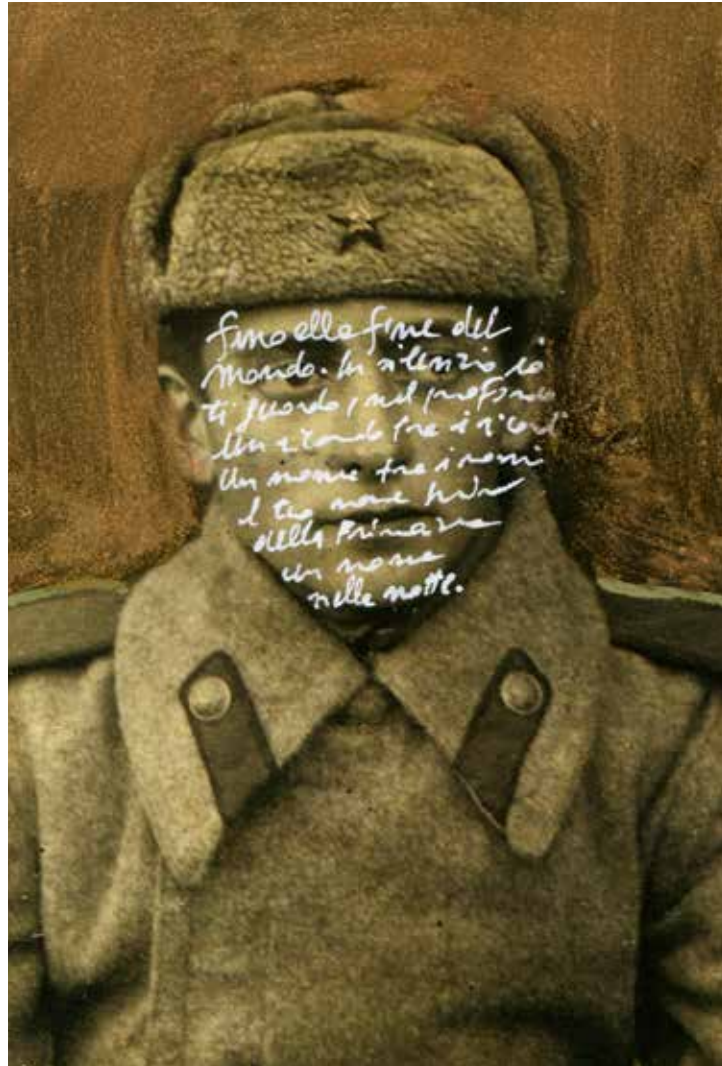 fino alla fine del
mondo. In silenzio io
ti guardo, nel profondo
Un ricordo fra i ricordi
Un nome fra i nomi
il tuo nome
della Primavera
un nome
nella notte.